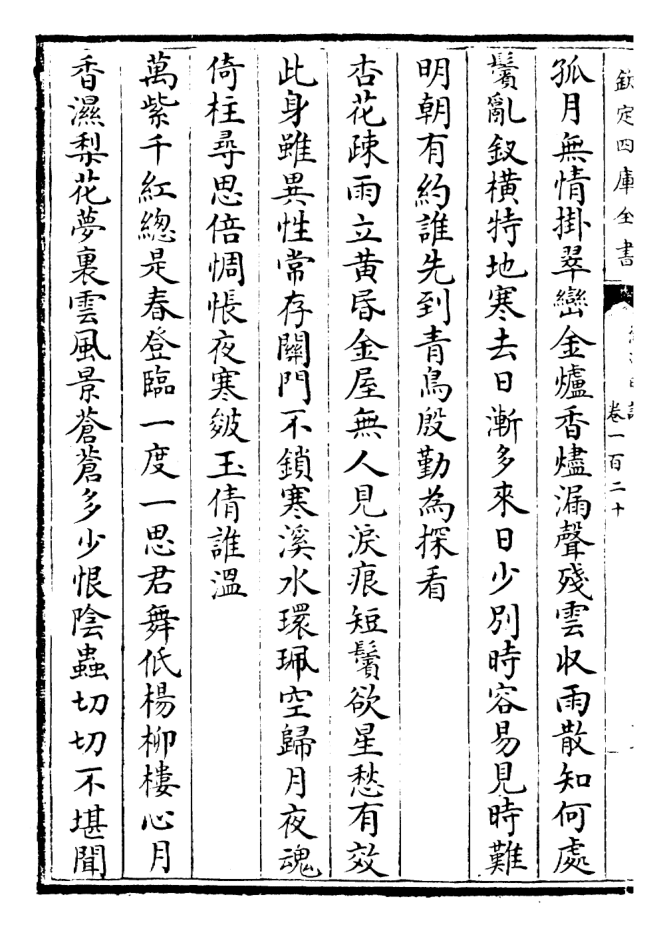 欽定四庫全書
卷一百二十
孤月無情掛翠巒金爐香燼漏聲殘雲収雨散知何處
鬢亂釵橫特地寒去日漸多來日少別時容易見時難
明朝有約誰先到青鳥殷勤為探看
杏花疎雨立黄昏金屋無人見淚痕短鬢欲星愁有效
此身雖異性常存關門不鎖寒溪水環珮空歸月夜魂
倚柱尋思倍惆悵夜寒皴玉倩誰溫
萬紫千紅緫是春登臨一度一思君舞低楊柳樓心月
香濕梨花夢裏雲風景蒼蒼多少恨陰蟲切切不堪聞